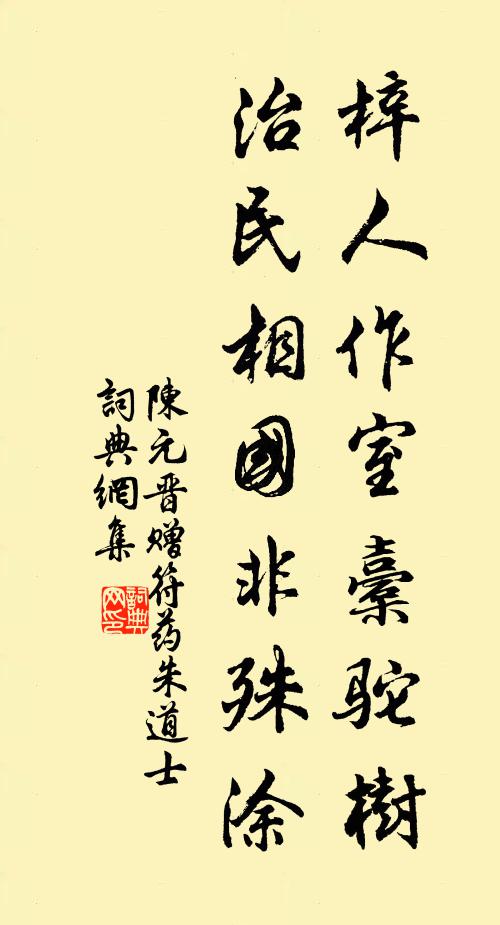 梓人作室橐駝樹
治民相國非殊涂
陳元晋赠符药朱道士
詞典網集
詞典网印